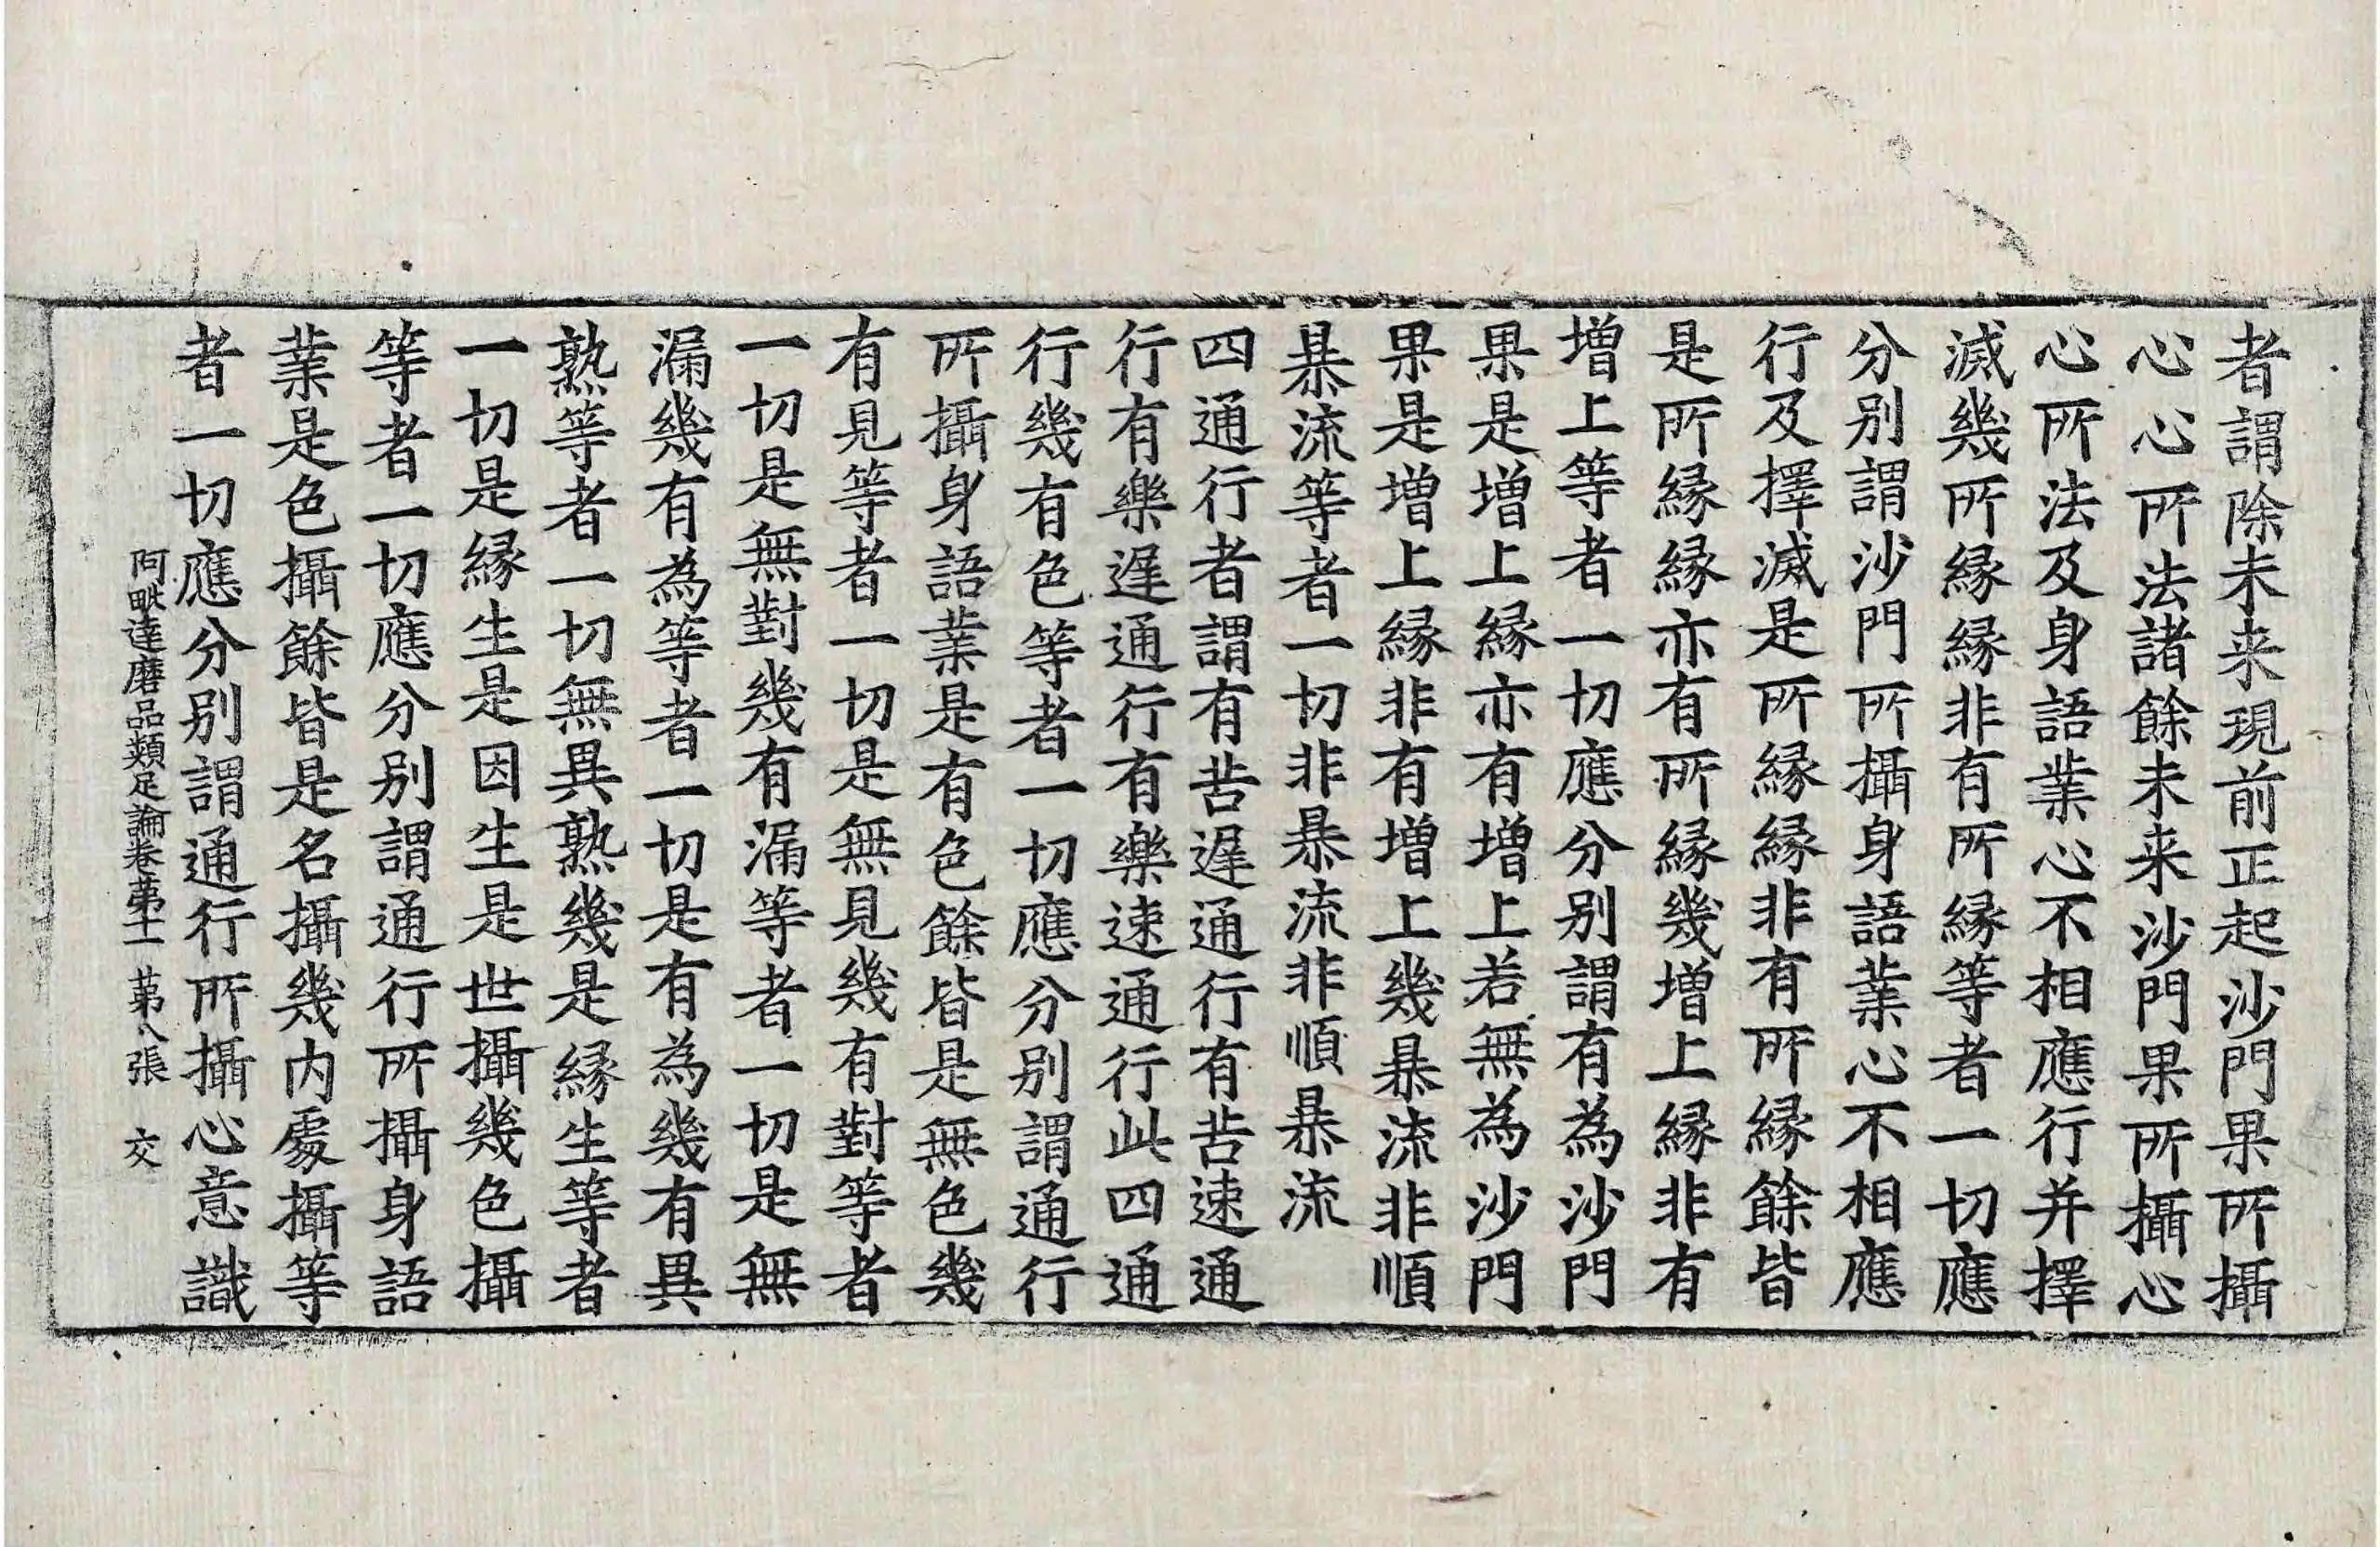 者謂除未来現前正起沙門果所攝
心心所法諸餘未来沙門果所攝心
心所法及身語業心不相應行并擇
滅幾所縁縁非有所縁等者一切應
分別謂沙門所攝身語業心不相應
行及擇滅是所縁縁非有所縁餘皆
是所縁縁亦有所縁幾増上縁非有
増上等者一切應分別謂有為沙門
果是増上縁亦有増上若無為沙門
果是増上縁非有増上幾暴流非順
暴流等者一切非暴流非順暴流
四通行者謂有苦遲通行有苦速通
行有樂遲通行有樂速通行此四通
行幾有色等者一切應分別謂通行
所攝身語業是有色餘皆是無色幾
有見等者一切是無見幾有對等者
一切是無對幾有漏等者一切是無
漏幾有為等者一切是有為幾有異
熟等者一切無異熟幾是縁生等者
一切是縁生是因生是世攝幾色攝
等者一切應分別謂通行所攝身語
業是色攝餘皆是名攝幾内處攝等
者一切應分別謂通行所攝心意識
阿毗達磨品類足論卷第十一 第八張 交